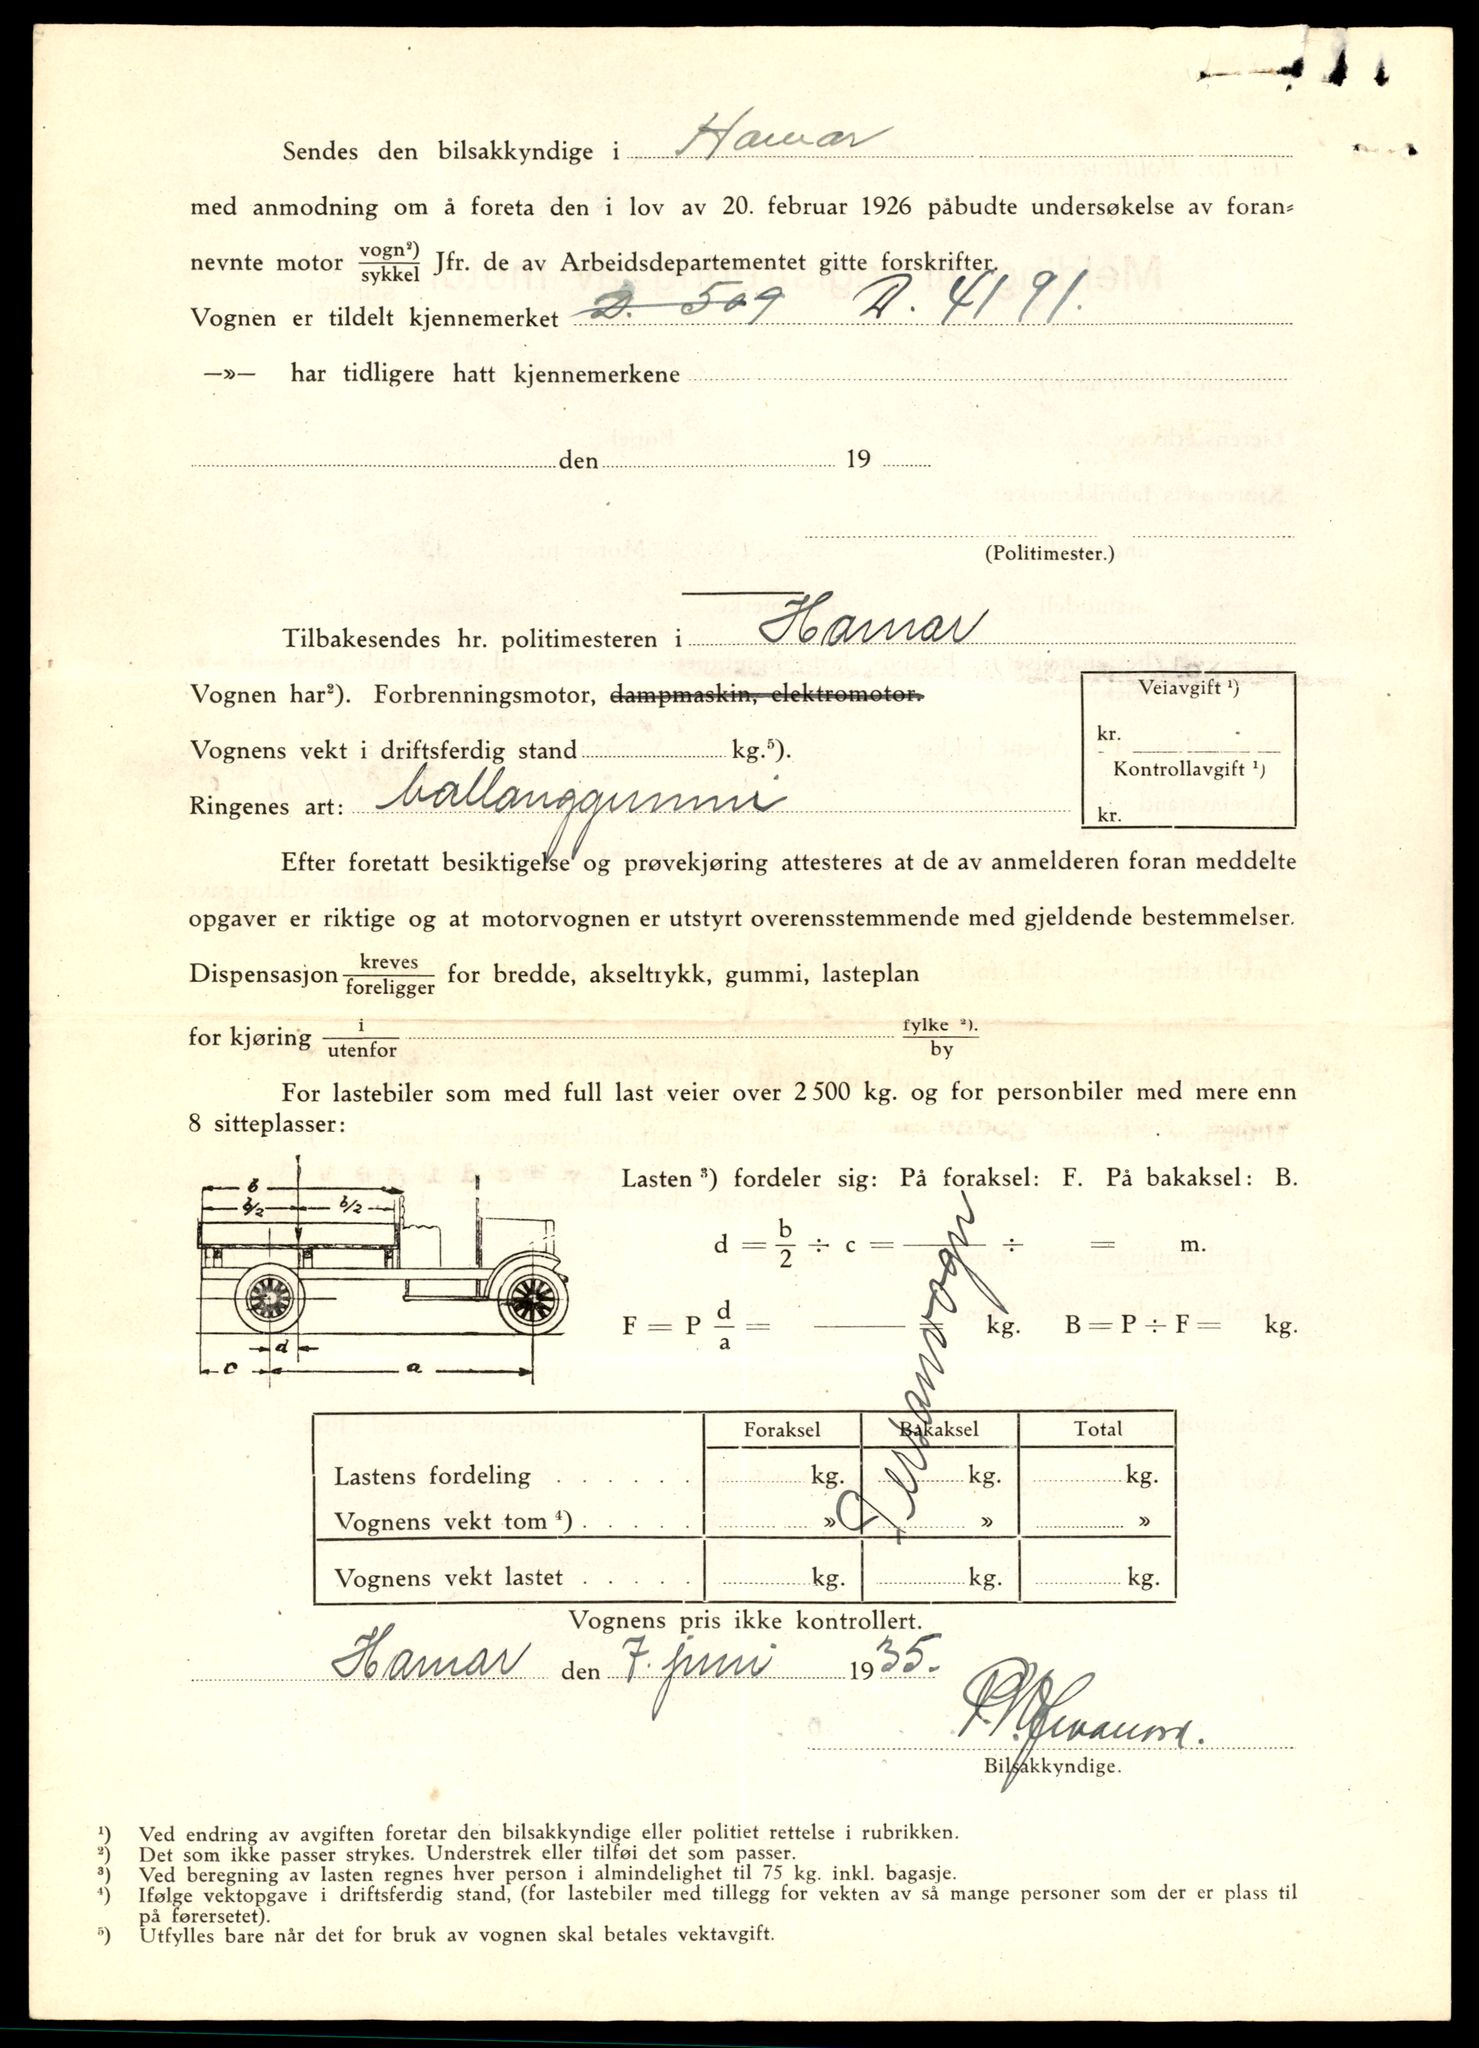 Sendes den bilsakkyndige i Hamar
med anmodning om å foreta den i lov av 20. februar 1926 påbudte undersøkelse av foran=
nevnte motor vogn²)/sykkel Jfr. de av Arbeidsdepartementet gitte forskrifter.
Vognen er tildelt kjennemerket D. 509 D. 4191.
—»— har tidligere hatt kjennemerkene
den 19
(Politimester.)
Tilbakesendes hr. politimesteren i Hamar
Vognen har²). Forbrenningsmotor, dampmaskin, elektromotor.
Veiavgift ¹)
kr.
Kontrollavgift ¹)
kr.
Vognens vekt i driftsferdig stand kg.⁵).
Ringenes art: ballonggummi
Efter foretatt besiktigelse og prøvekjøring attesteres at de av anmelderen foran meddelte
opgaver er riktige og at motorvognen er utstyrt overensstemmende med gjeldende bestemmelser.
Dispensasjon kreves/foreligger for bredde, akseltrykk, gummi, lasteplan
for kjøring i/utenfor fylke ²)./by
For lastebiler som med full last veier over 2500 kg. og for personbiler med mere enn
8 sitteplasser:
b
b/2 b/2
d
c a
Lasten ³) fordeler sig: På foraksel: F. På bakaksel: B.
d = b/2 ÷ c = ÷ = m.
F = P d/a = = kg. B = P ÷ F = kg.
Personvogn
Foraksel Bakaksel Total
Lastens fordeling . . . . . . kg. kg. kg.
Vognens vekt tom ⁴) . . . . . » » »
Vognens vekt lastet . . . . . kg. kg. kg.
Vognens pris ikke kontrollert.
Hamar den 7. juni 1935.
Bilsakkyndige.
¹) Ved endring av avgiften foretar den bilsakkyndige eller politiet rettelse i rubrikken.
²) Det som ikke passer strykes. Understrek eller tilføi det som passer.
³) Ved beregning av lasten regnes hver person i almindelighet til 75 kg. inkl. bagasje.
⁴) Ifølge vektopgave i driftsferdig stand, (for lastebiler med tillegg for vekten av så mange personer som der er plass til
på førersetet).
⁵) Utfylles bare når det for bruk av vognen skal betales vektavgift.